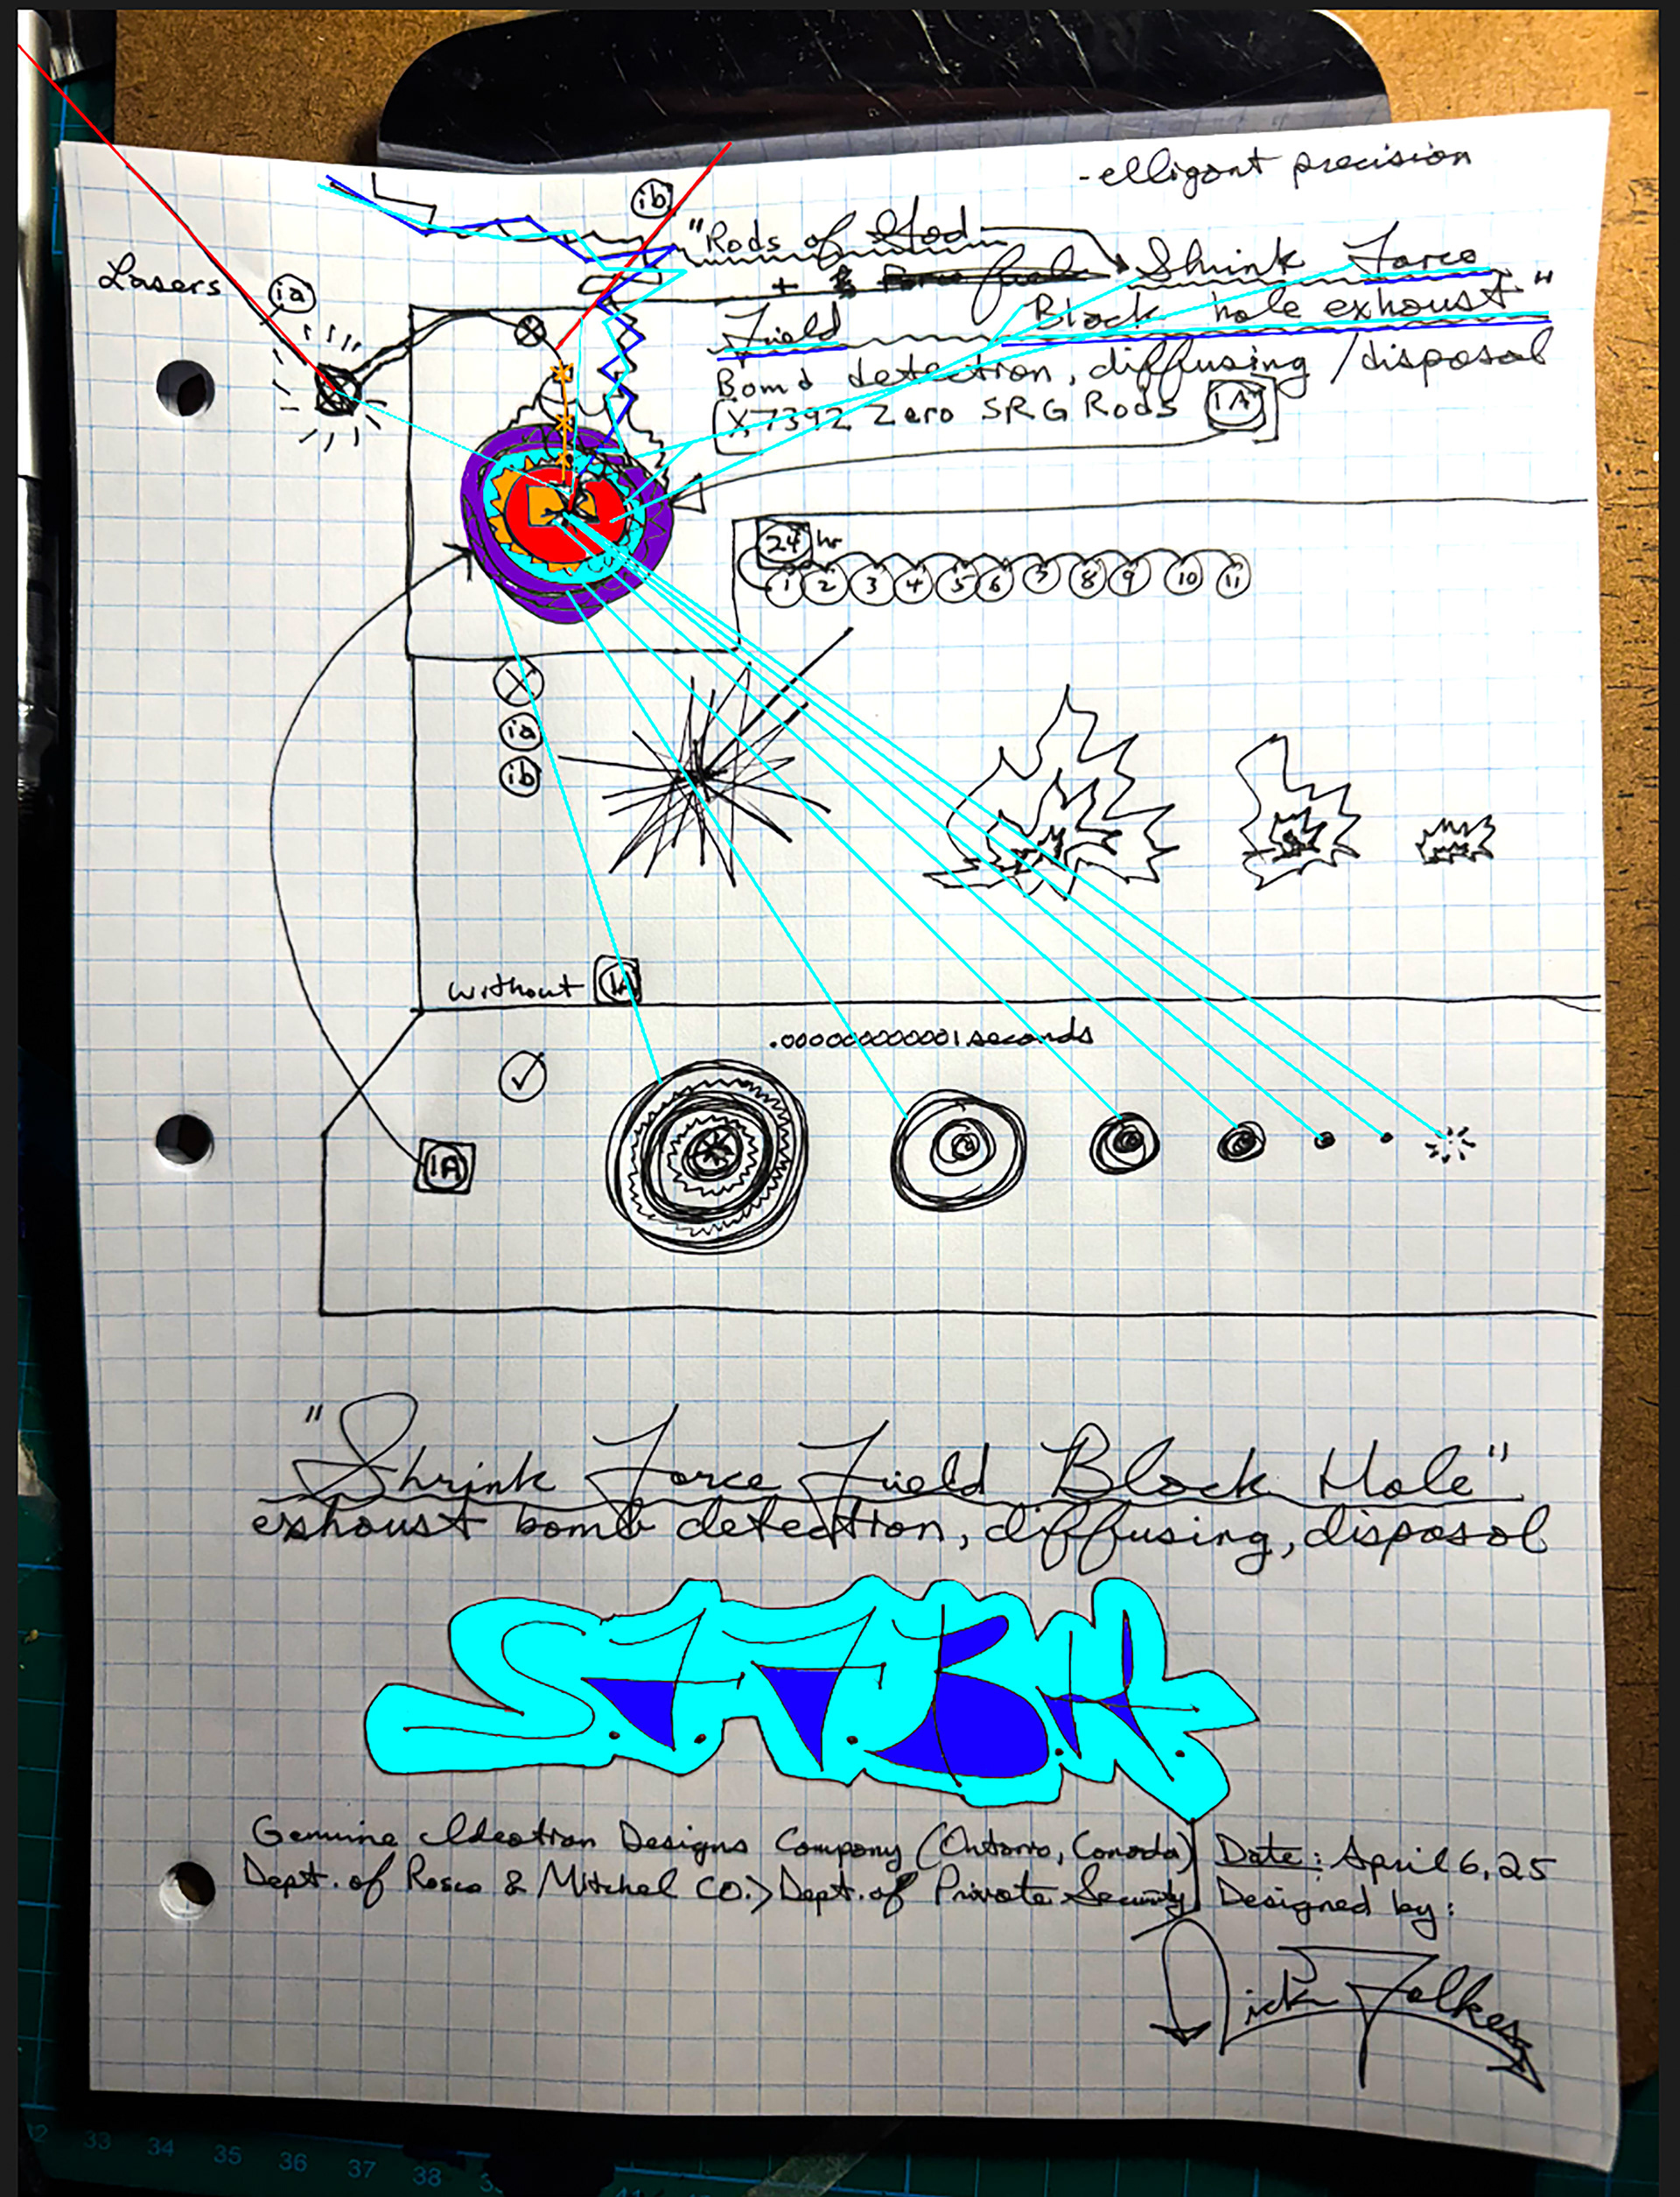 -elligant precision
ib
"Rods of God
Lasers
ia
+ Shrink Force
Field Black hole exhaust"
Bomb detection, diffusing /disposal
X7392 Zero SRG Rods 1A
24 hr
1 2 3 4 5 6 7 8 9 10 11
X
ia
ib
without 1A
.000000000001 seconds
1A
"Shrink Force Field Black Hole"
exhaust bomb detection, diffusing, disposal
S.F.F.B.H.
Genuine Ideation Designs Company (Ontario, Canada) Date: April 6, 25
Dept. of Rosco & Mitchel CO.> Dept. of Private Security Designed by:
Nick Folkes
32 33 34 35 36 37 38